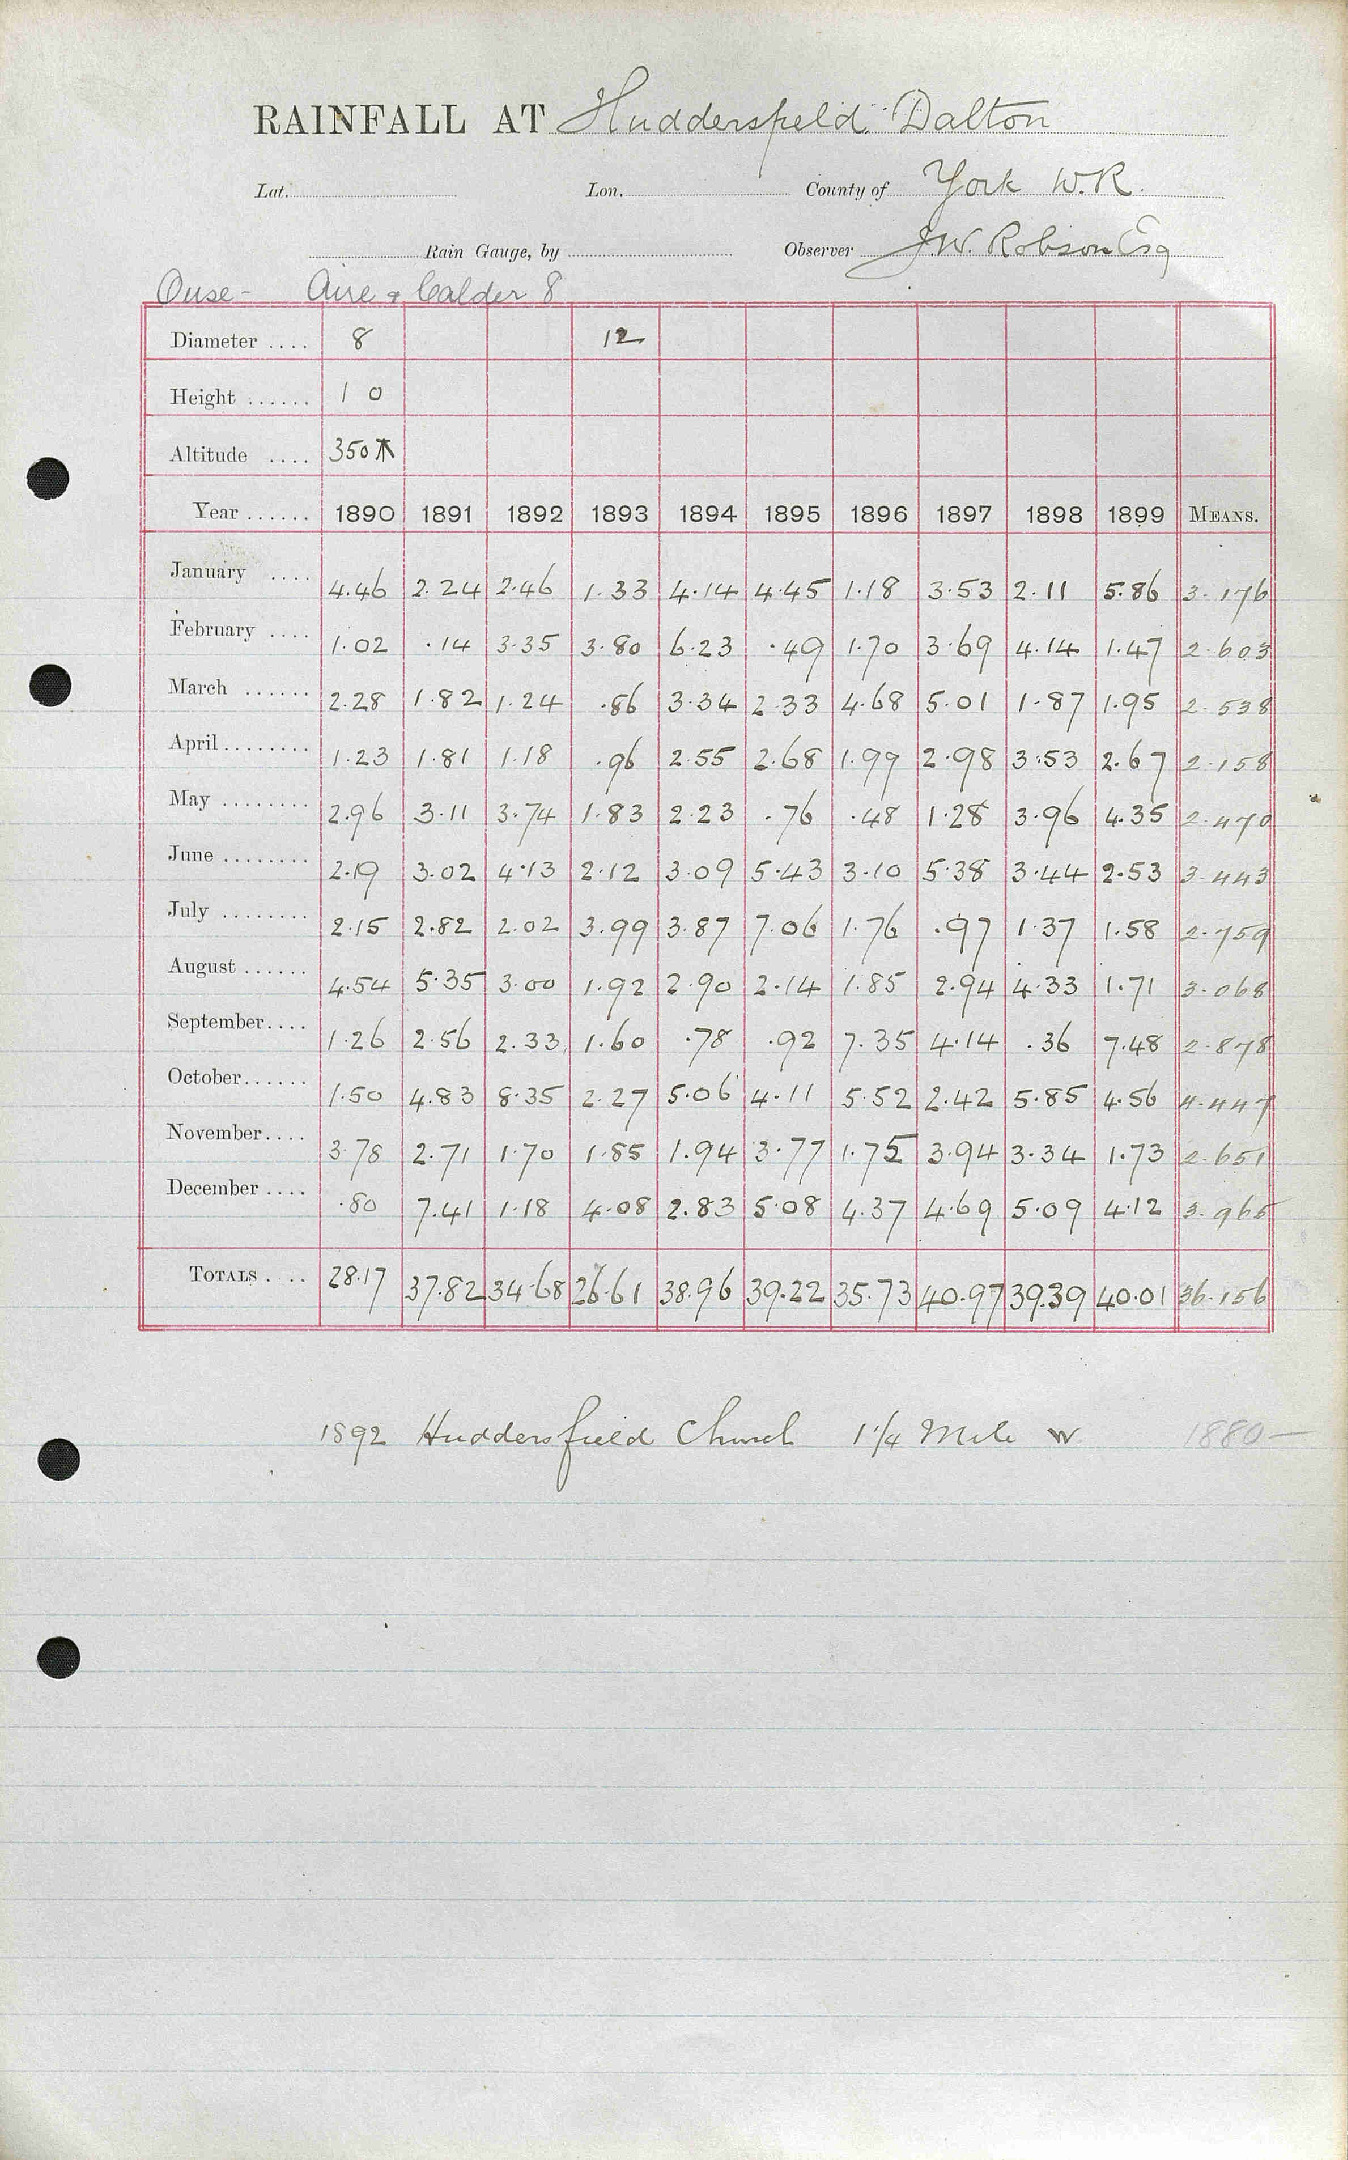 RAINFALL AT Huddersfield Dalton
Lat. Lon. County of York W.R.
Rain Gauge, by Observer J.W. Robson Esq
Ouse - Aire & Calder 8
Diameter .... 8 12
Height ...... 1 0
Altitude .... 350 T
Year ...... 1890 1891 1892 1893 1894 1895 1896 1897 1898 1899 MEANS.
January .... 4.46 2.24 2.46 1.33 4.14 4.45 1.18 3.53 2.11 5.86 3.176
February .... 1.02 .14 3.35 3.80 6.23 .49 1.70 3.69 4.14 1.47 2.603
March ...... 2.28 1.82 1.24 .86 3.34 2.33 4.68 5.01 1.87 1.95 2.538
April ........ 1.23 1.81 1.18 .96 2.55 2.68 1.99 2.98 3.53 2.67 2.158
May ........ 2.96 3.11 3.74 1.83 2.23 .76 .48 1.28 3.96 4.35 2.470
June ........ 2.19 3.02 4.13 2.12 3.09 5.43 3.10 5.38 3.44 2.53 3.443
July ........ 2.15 2.82 2.02 3.99 3.87 7.06 1.76 .97 1.37 1.58 2.759
August ...... 4.54 5.35 3.00 1.92 2.90 2.14 1.85 2.94 4.33 1.71 3.068
September .... 1.26 2.56 2.33 1.60 .78 .92 7.35 4.14 .36 7.48 2.878
October ...... 1.50 4.83 8.35 2.27 5.06 4.11 5.52 2.42 5.85 4.56 4.447
November .... 3.78 2.71 1.70 1.85 1.94 3.77 1.75 3.94 3.34 1.73 2.651
December .... .80 7.41 1.18 4.08 2.83 5.08 4.37 4.69 5.09 4.12 3.965
TOTALS .... 28.17 37.82 34.68 26.61 38.96 39.22 35.73 40.97 39.39 40.01 36.156
1892 Huddersfield Church 1 1/4 Mile W 1880 —